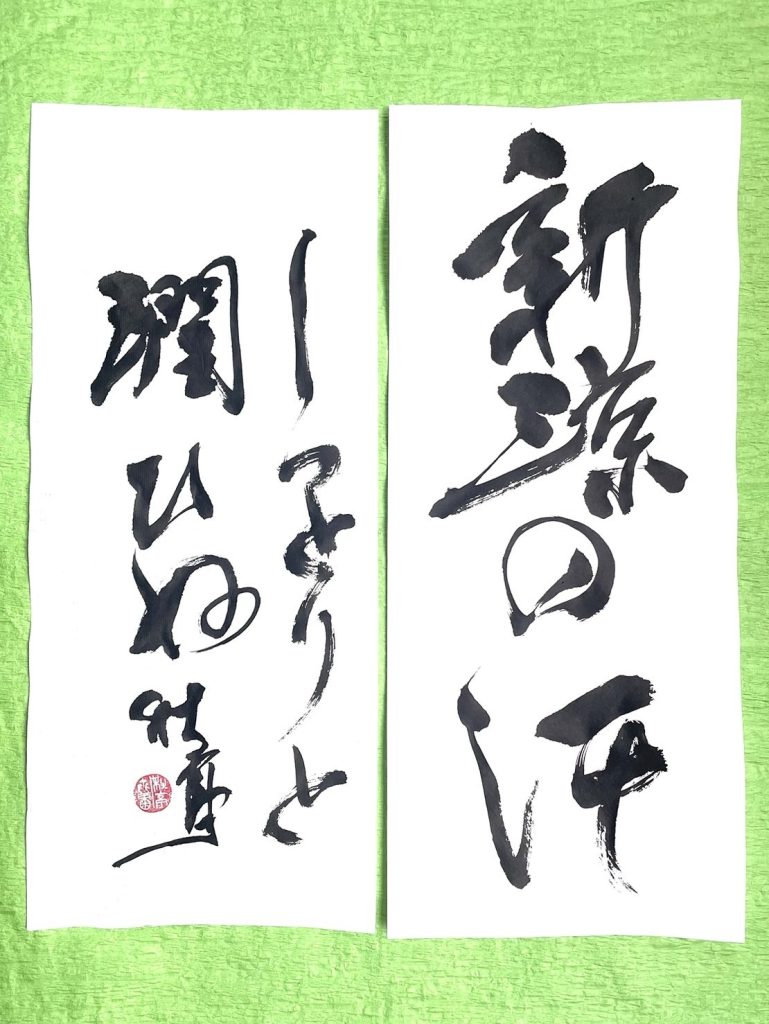 新涼の汗
しつとりと
潤ひぬ 秋亭